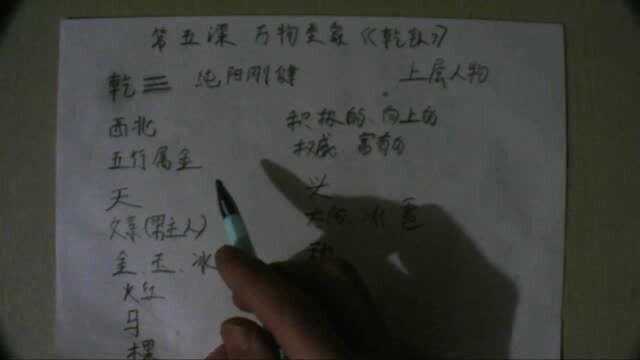 第五课 万物类象《乾卦》
乾☰ 纯阳刚健 上层人物
西北 积极的 向上的
五行属金 权威 富有的
天
父亲(男主人)
金、玉、冰
大红
马